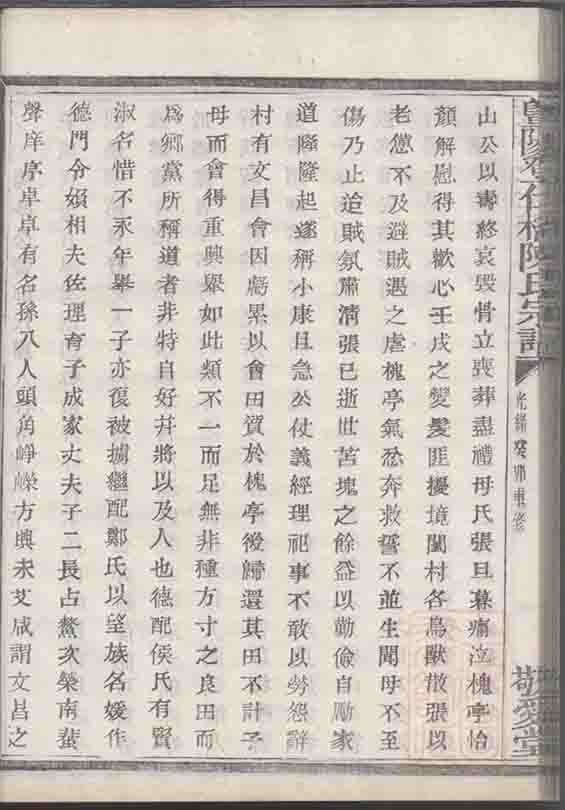 陳氏宗譜
光緒癸卯重修
敬愛堂
山公以壽終哀毀骨立喪葬盡禮母氏張旦暮痛泣槐亭怡
顏解慰得其歡心壬戌之變髮匪擾境闔村各鳥獸散張以
老憊不及避賊遇之虐槐亭氣忿奔救誓不並生聞母不至
傷乃止迨賊氛肅清張已逝世苫塊之餘益以勤儉自勵家
道隆隆起遂稱小康且急公仗義經理祀事不敢以勞怨辭
村有文昌會因虧累以會田質於槐亭後歸還其田不計子
母而會得重興舉如此類不一而足無非種方寸之良田而
爲鄉黨所稱道者非特自好并將以及人也德配侯氏有賢
淑名惜不永年舉一子亦復被擄繼配鄭氏以望族名媛作
德門令嬪相夫佐理育子成家丈夫子二長占鰲次榮南蜚
聲庠序卓卓有名孫八人頭角崢嶸方興未艾咸謂文昌之